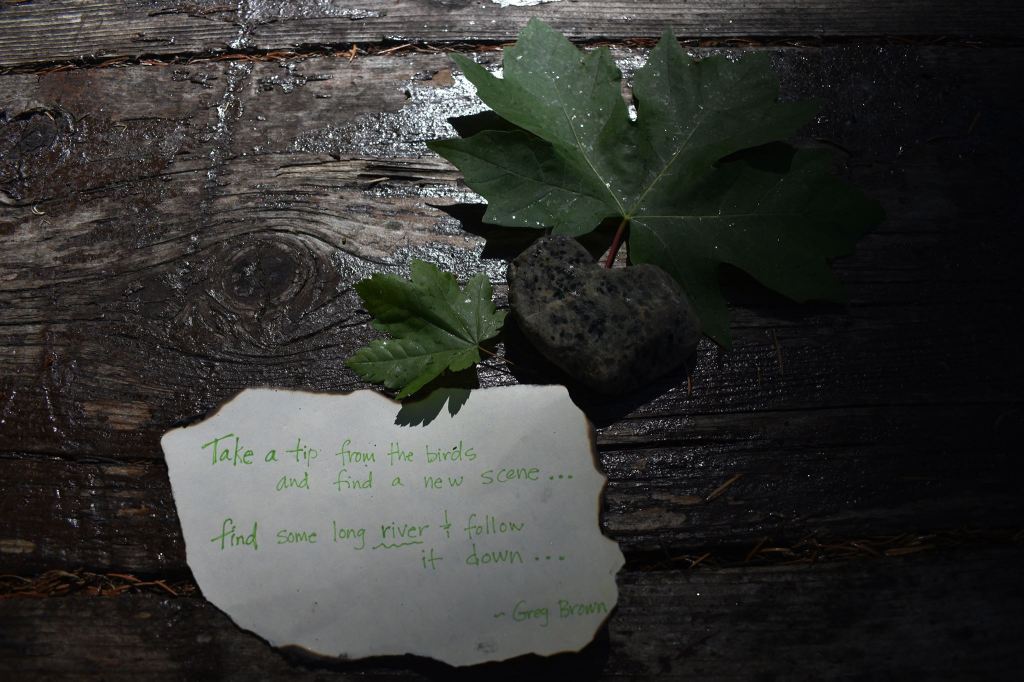 Take a tip from the birds
and find a new scene...
find some long river & follow
it down...
~ Greg Brown